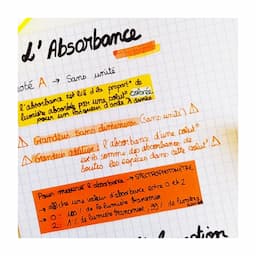 L'Absorbance
oté A → Sans unité
l'absorbance est lié à la proport° de
lumière absorbée par une solut° colorée
pour un longueur d'onde λ donnée
⚠ Grandeur sans dimension (sans unité) ⚠
⚠ Grandeur additive : l'absorbance d'une solut°
est la somme des absorbances de
toutes les espèces dans cette solut°
Pour mesurer l'absorbance → SPECTROPHOTOMÈTRE
→ affiche une valeur d'absorbance entre 0 et 2
→ 0 : 100 % de la lumière transmise
→ 2 : 1 % de lumière transmise, 99 % de lumière